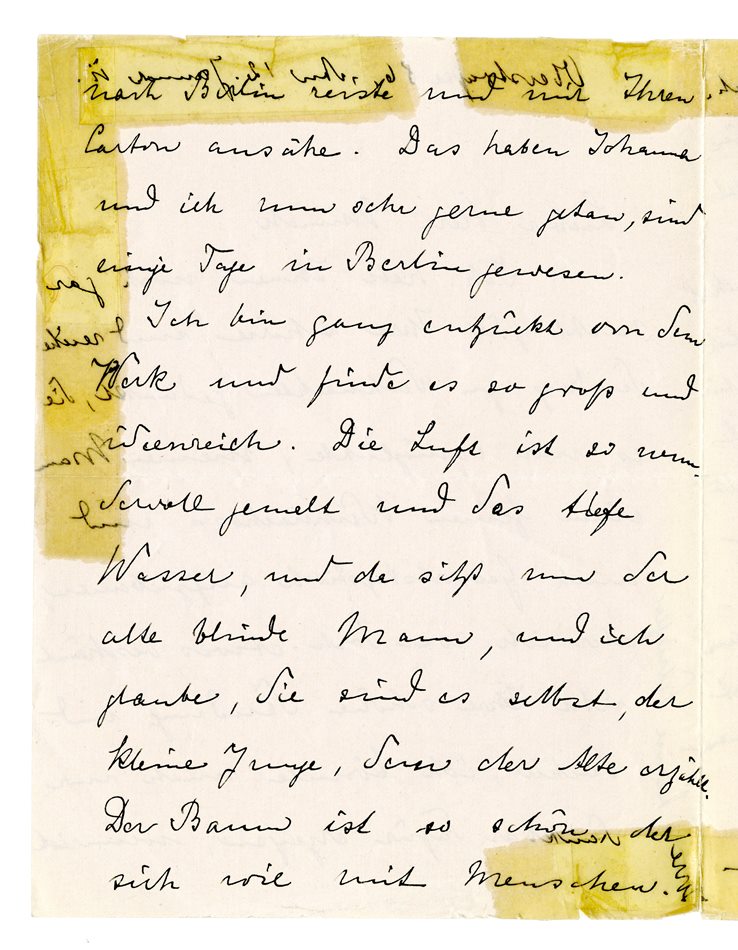 nach Berlin reiste und mir Ihren
Carton ansähe. Das haben Johanna
und ich nun sehr gerne getan, sind
einige Tage in Berlin gewesen.
Ich bin ganz entzückt von dem
Werk und finde es so groß und
ideenreich. Die Luft ist so wun-
dervoll gemalt und das tiefe
Wasser, und da sitzt nun der
alte blinde Mann, und ich
glaube, Sie sind es selbst, der
kleine Junge, dem der Alte erzählt.
Der Baum ist so schön, der
sich wie mit Menschen.